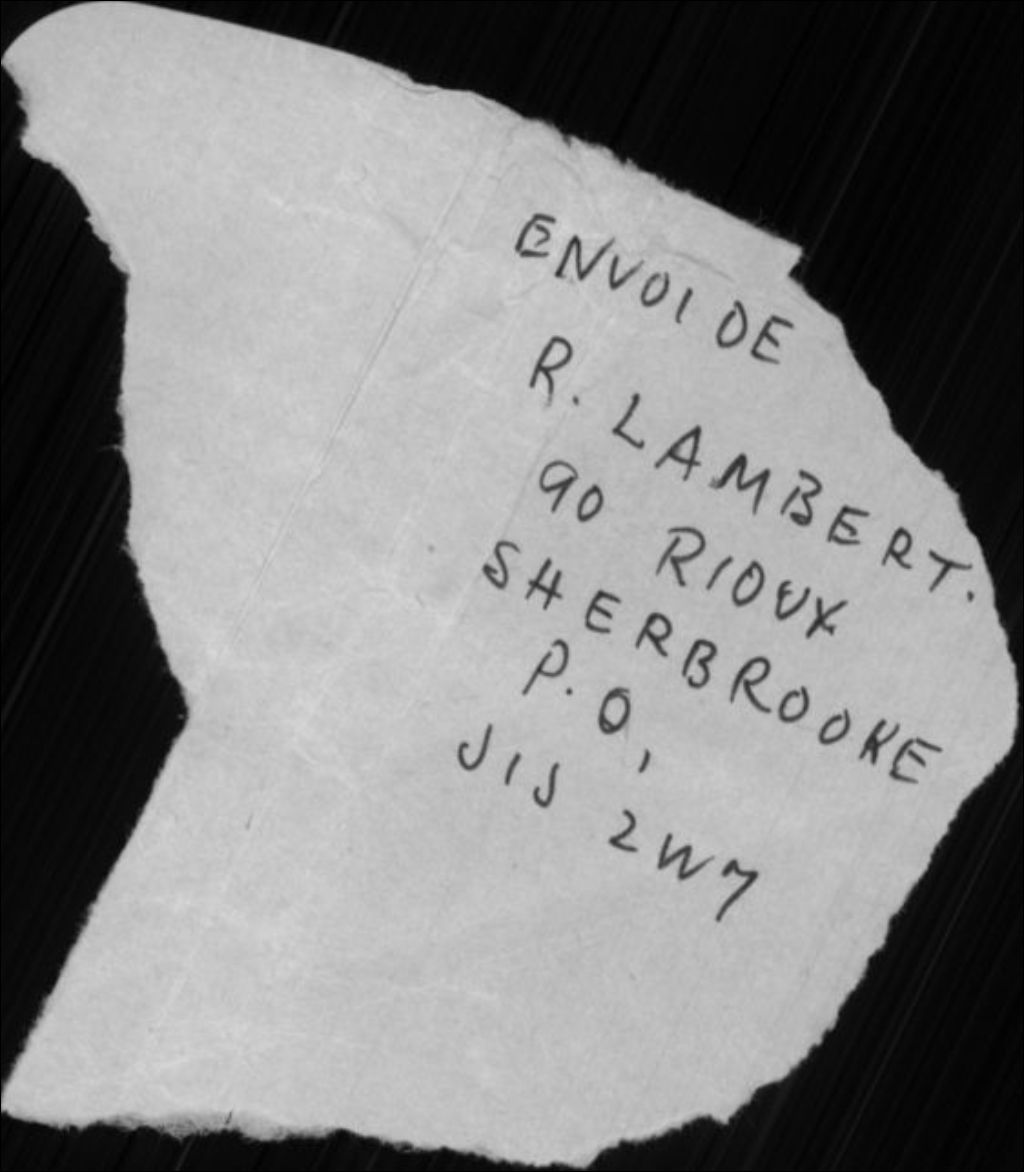 ENVOI DE
R. LAMBERT.
90 RIOUX
SHERBROOKE
P.Q,
J1S 2W7